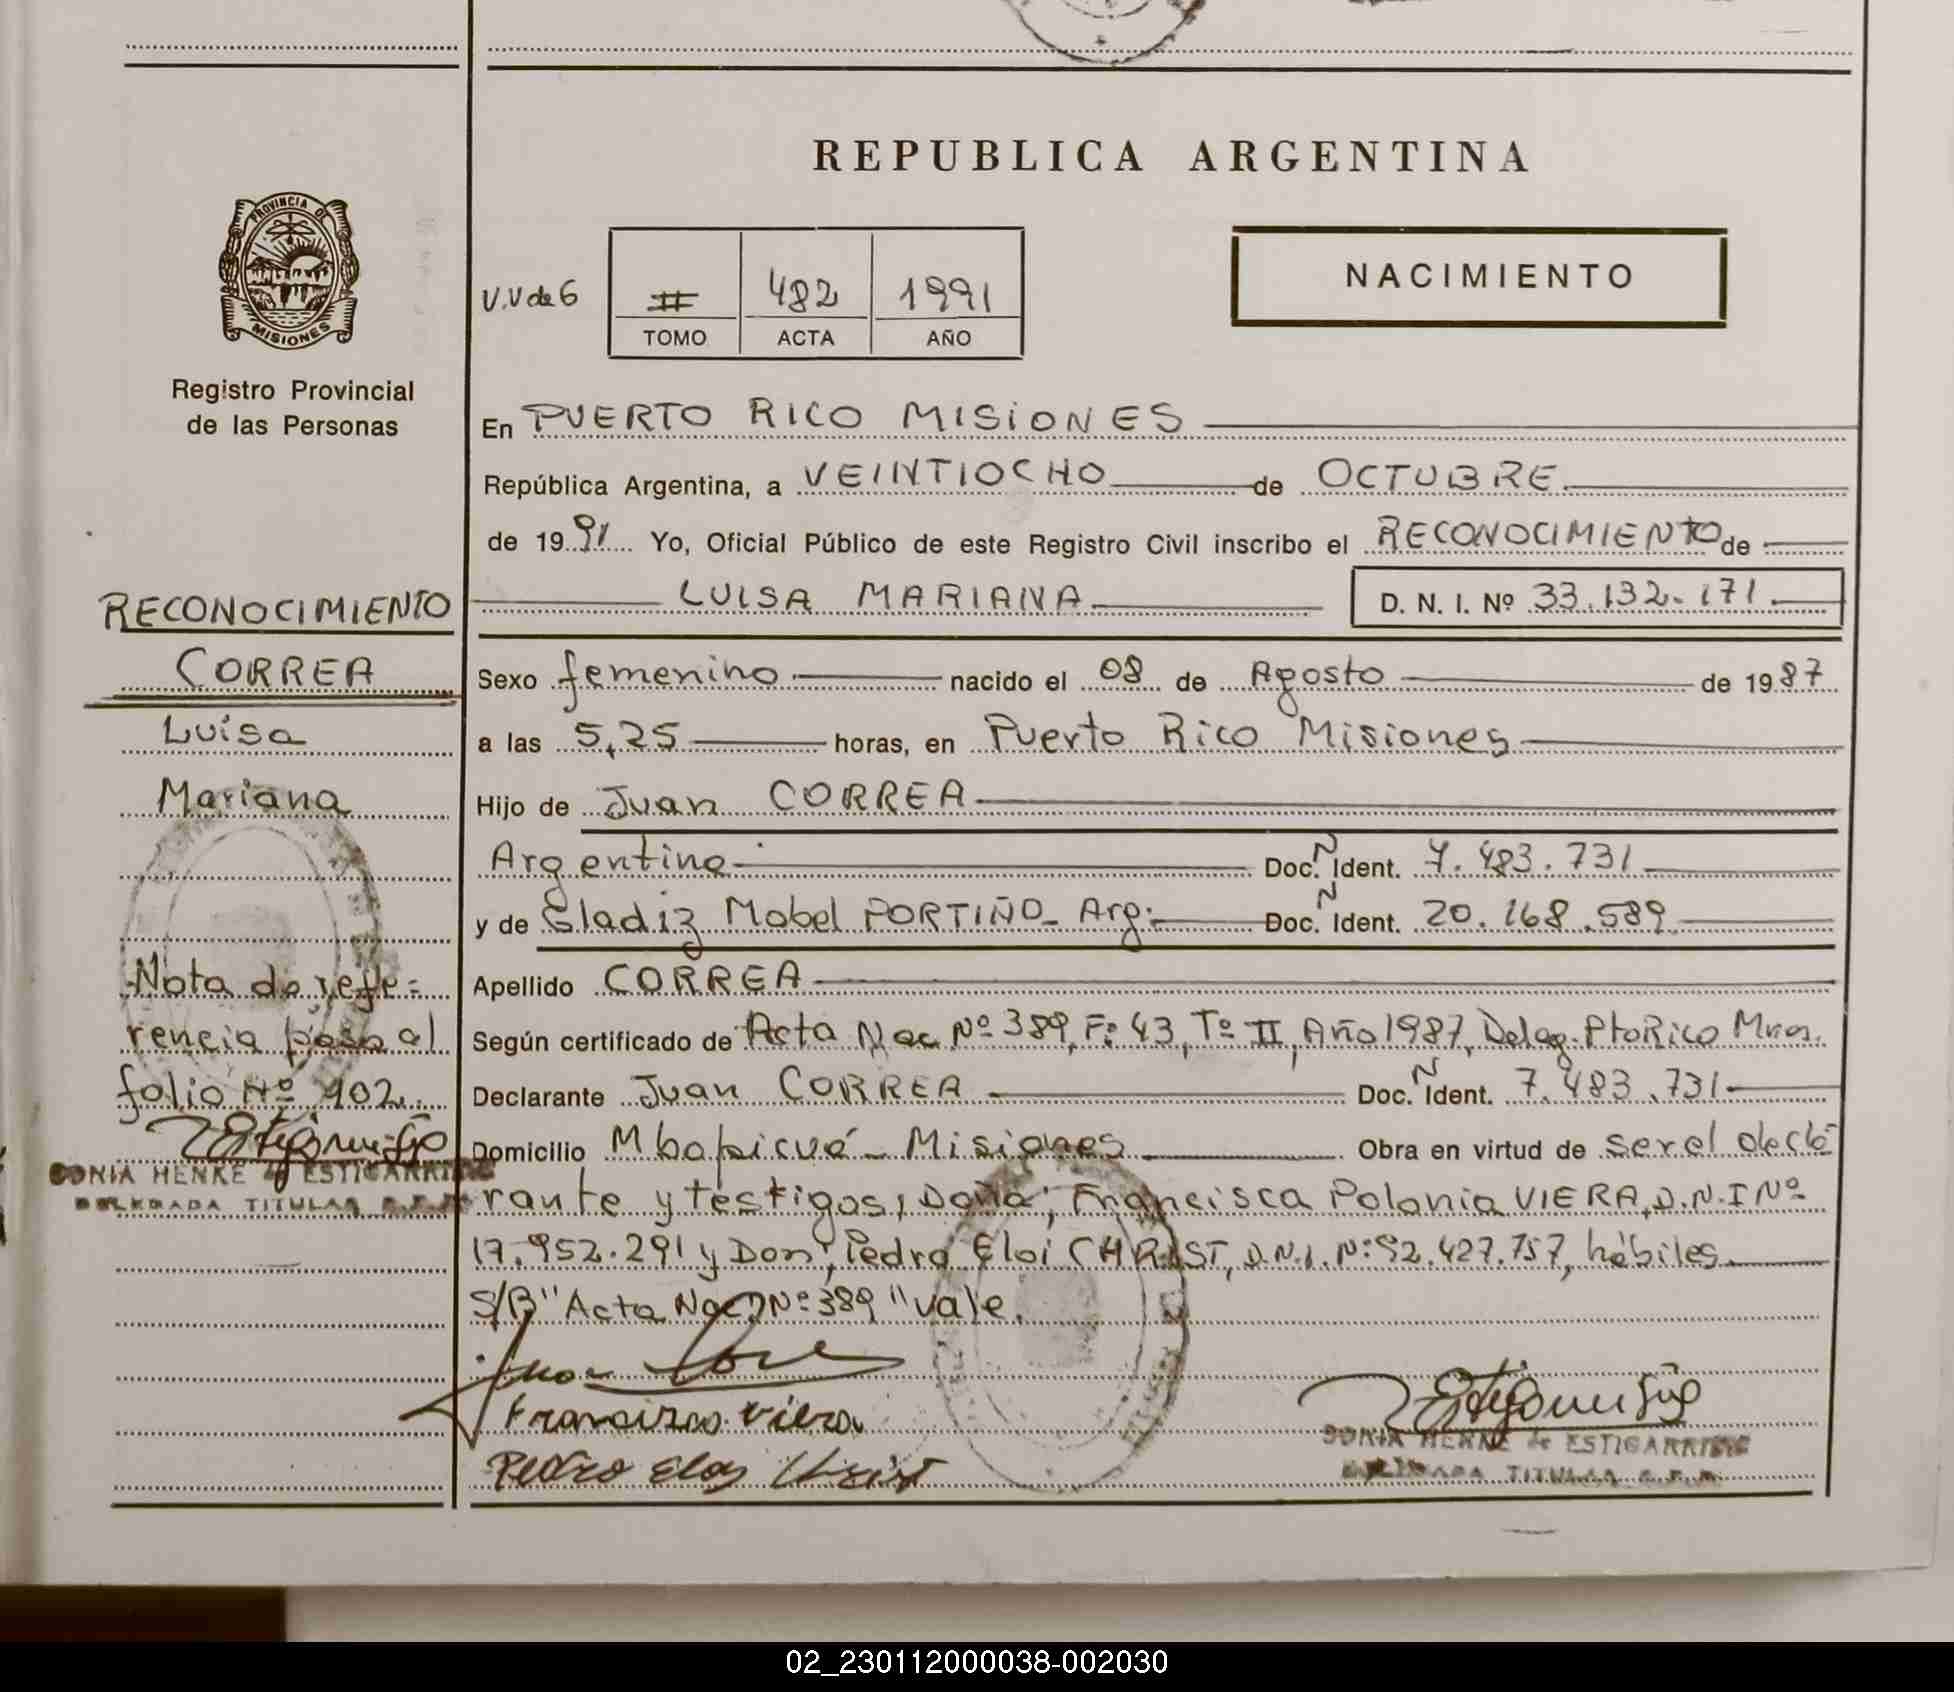 REPUBLICA ARGENTINA
NACIMIENTO
PROVINCIA DE
MISIONES
Registro Provincial
de las Personas
V.V de 6
482 1991
TOMO ACTA AÑO
En PUERTO RICO MISIONES
República Argentina, a VEINTIOCHO de OCTUBRE
de 1991 Yo, Oficial Público de este Registro Civil inscribo el RECONOCIMIENTO de
LUISA MARIANA D. N. I. Nº 33.132.171
RECONOCIMIENTO
CORREA
Luisa
Mariana
Sexo femenino nacido el 08 de Agosto de 1987
a las 5,25 horas, en Puerto Rico Misiones
Hijo de Juan CORREA
Argentino Doc. N Ident. 7.483.731
y de Gladiz Mabel PORTIÑO - Arg. Doc. N Ident. 20.168.589
Apellido CORREA
Según certificado de Acta Nac Nº 389, Fº 43, Tº II, Año 1987, Deleg. Pto Rico Mnes.
Declarante Juan CORREA Doc. N Ident. 7.483.731
Domicilio Mbopicuá - Misiones Obra en virtud de ser el decla
rante y testigos, Doña; Francisca Polonia VIERA, D.N.I Nº
17.952.291 y Don, Pedro Eloi CHRIST, D.N.I. Nº 92.427.757, hábiles
S/B "Acta Nac. Nº 389" vale.
Nota de refe=
rencia pasa al
folio Nº 102.
SONIA HENKE de ESTIGARRIBIA
DELEGADA TITULAR R.P.P.
Francisca Viera
Pedro Eloy Christ
SONIA HENKE de ESTIGARRIBIA
DELEGADA TITULAR R.P.P.
02_230112000038-002030